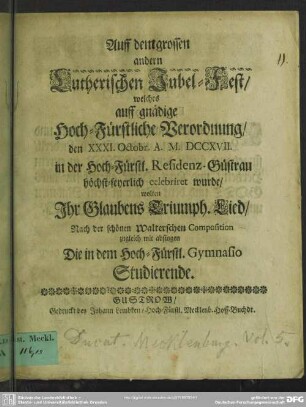 Auff dem grossen
andern
Lutherischen Jubel-Fest/
welches
auff gnädige
Hoch-Fürstliche Verordnung/
den XXXI. Octobr. A. M. DCCXVII.
in der Hoch-Fürstl. Residenz-Güstrau
höchst-feyerlich celebriret wurde/
wolten
Ihr Glaubens Triumph-Lied/
Nach der schönen Walterschen Composition
zugleich mit absingen
Die in dem Hoch-Fürstl. Gymnasio
Studierende.
GÜSTROW/
Gedruckt bey Johann Lembken/Hoch-Fürstl. Mecklenb.-Hoff-Buchdr.
Ducat. Mecklenburg. Vol. 5.
Meckl.